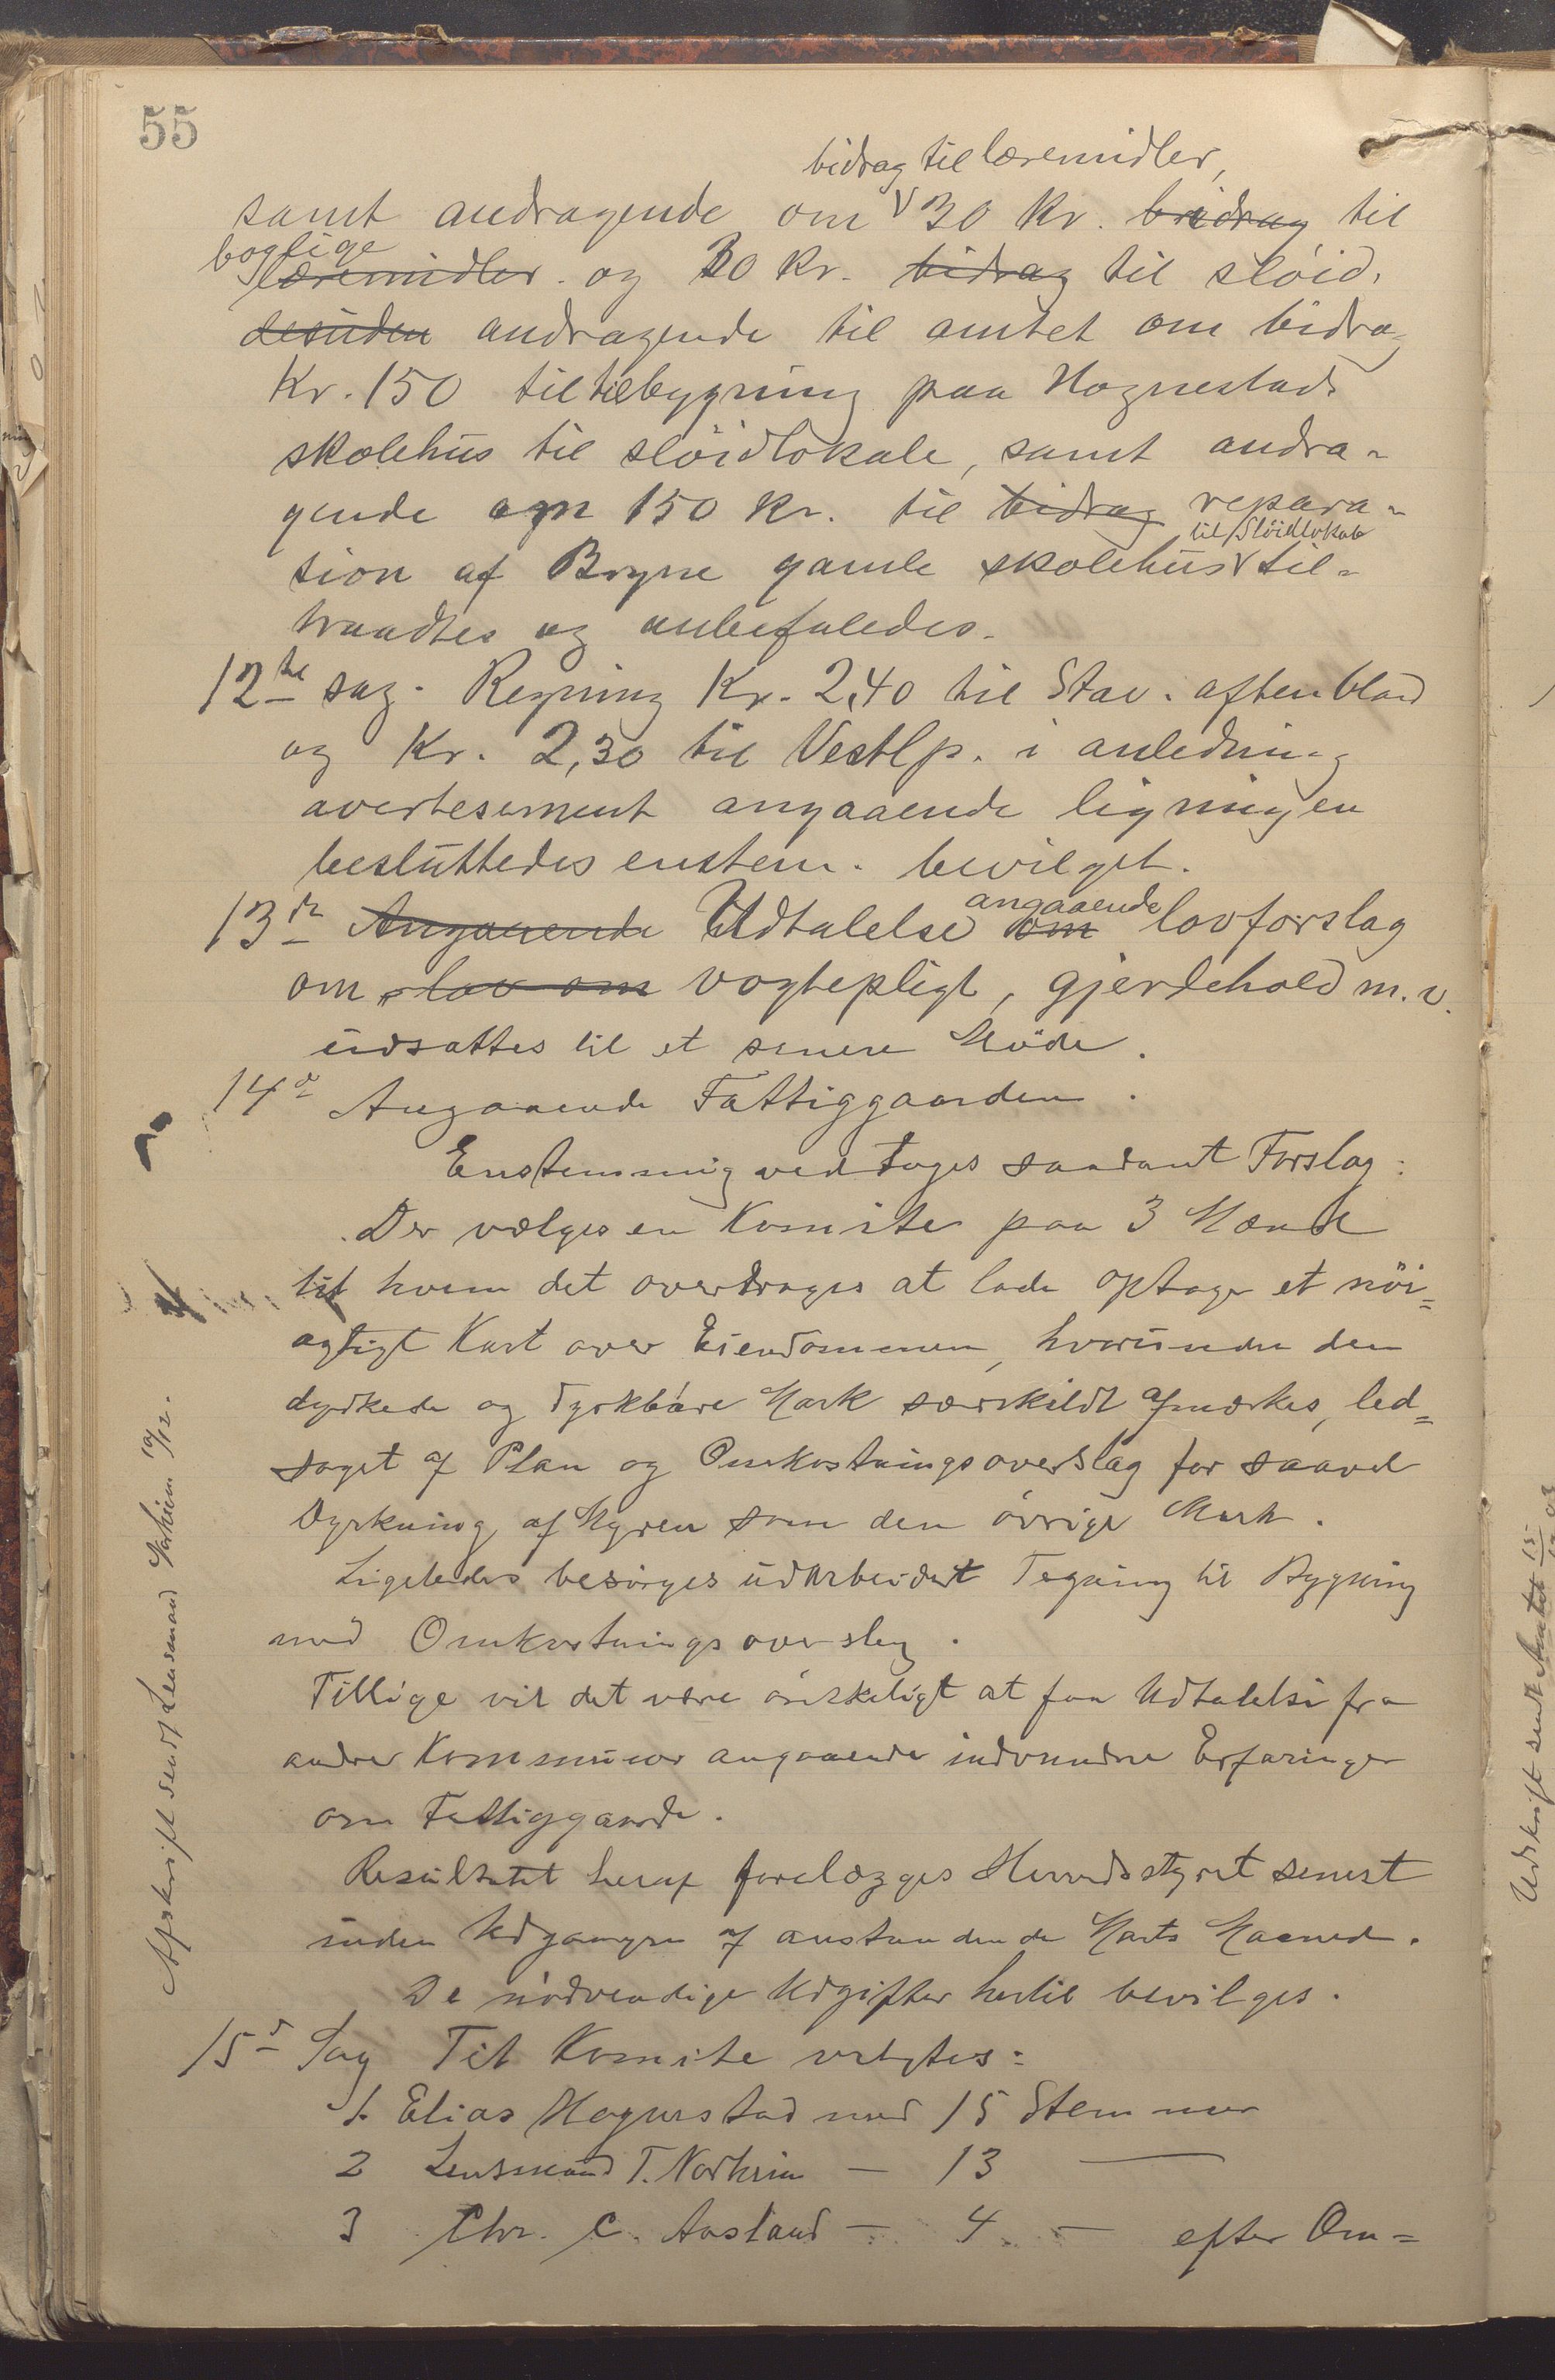 55
bidrag til læremidler,
samt andragende om 30 Kr. bidrag til
boglige
læremidler. og 20 Kr. bidrag til slöid.
desuden andragende til amtet om bidrag
Kr. 150 til tilbygning paa Hognestad
skolehus til slöidlokale, samt andra-
gende om 150 Kr. til bidrag repara-
til Slöidlokale
tion af Bryne gamle skolehus til-
traadtes og anbefaledes.
12te sag. Regning Kr. 2,40 til Stav. aftenblad
og Kr. 2,30 til Vestlp. i anledning
avertesement angaaende ligningen
besluttedes enstem. bevilget.
angaaende
13de Angaaende Udtalelse om lovforslag
om lov om vogtepligt, gjerdehold m.v.
udsattes til et senere Möde.
14de Angaaende Fattiggaarden.
Enstemmig vedtoges saadant Forslag:
Der vælges en Komite paa 3 Mænd
til hvem det overdrages at lade optage et nöi=
agtigt Kart over Eiendommen, hvorunder den
dyrkede og dyrkbare Mark særskildt afmærkes, led=
saget af Plan og Omkostningsoverslag for saavel
Dyrkning af Myren som den övrige Mark.
Ligeledes besörges udarbeidet Tegning til Bygning
med Omkostningsoverslag.
Tillige vil det være önskeligt at faa Udtalelse fra
andre Kommuner angaaende indvundne Erfaringer
om Fattiggaarde.
Resultatet heraf forelægges Herredsstyret senest
inden Udgangen af anstundende Marts Maaned.
De nödvendige Udgifter hertil bevilges.
15de Sag Til Komite valgtes:
1. Elias Hognestad med 15 Stemmer
2 Lensmand T. Norheim — 13 —
3 Chr. C. Aasland — 4 — efter Om=
Afskrift sendt Lensmand Norheim 19/12.
Udskrift sendt Amtet 15